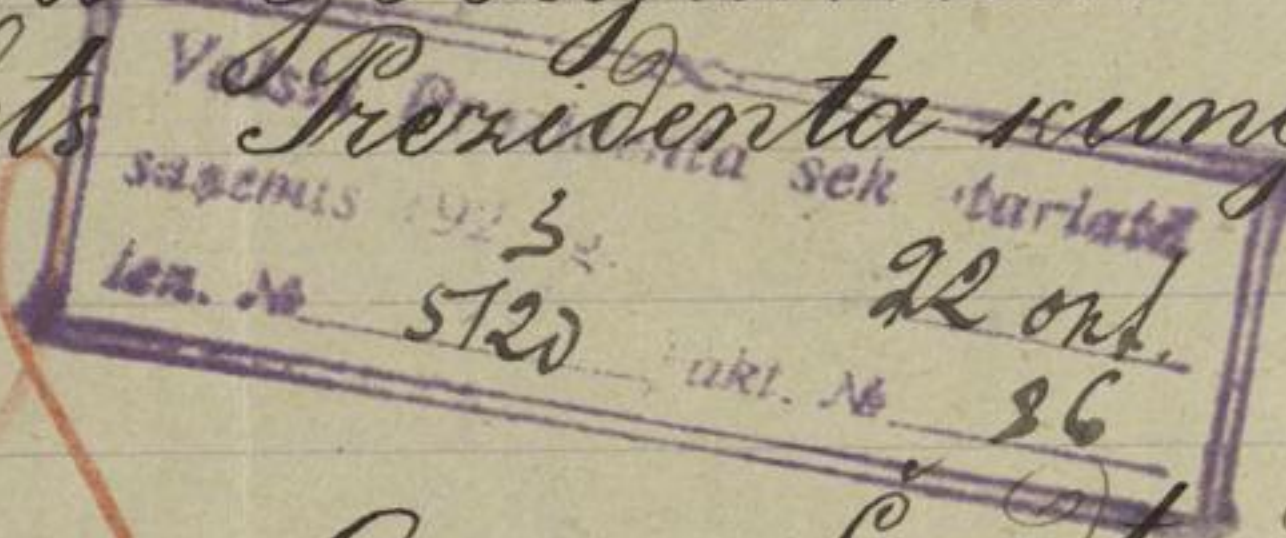 Prezidenta kung
Valsts Prezidenta sekretariatā
saņemts 1923 g. 22 okt.
ien. № 5120 akt. № 86